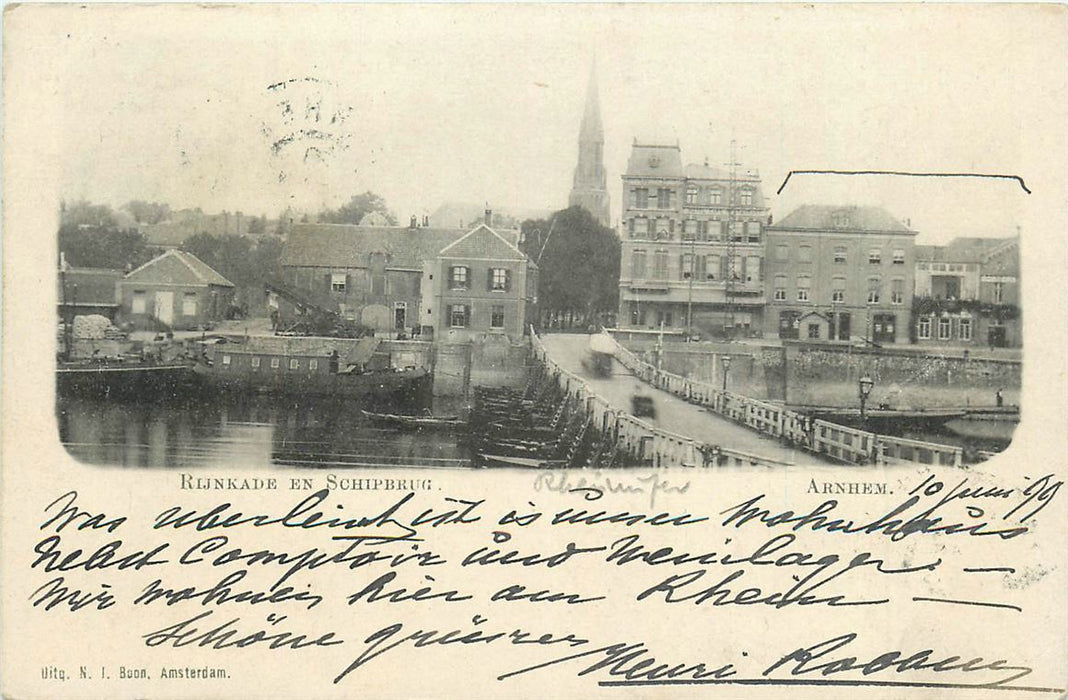 RIJNKADE EN SCHIPBRUG.
Rheinufer
ARNHEM.
10 juni 99
Was uberleint ist is unser Wohnhaus
nebst Comptoir und Weinlager. —
Wir wohnen hier am Rhein —
Schöne grüsse
Henri
Uitg. N. J. Boon, Amsterdam.